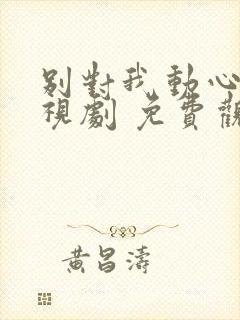 別對我動心
視劇 免費觀
黃昌濤